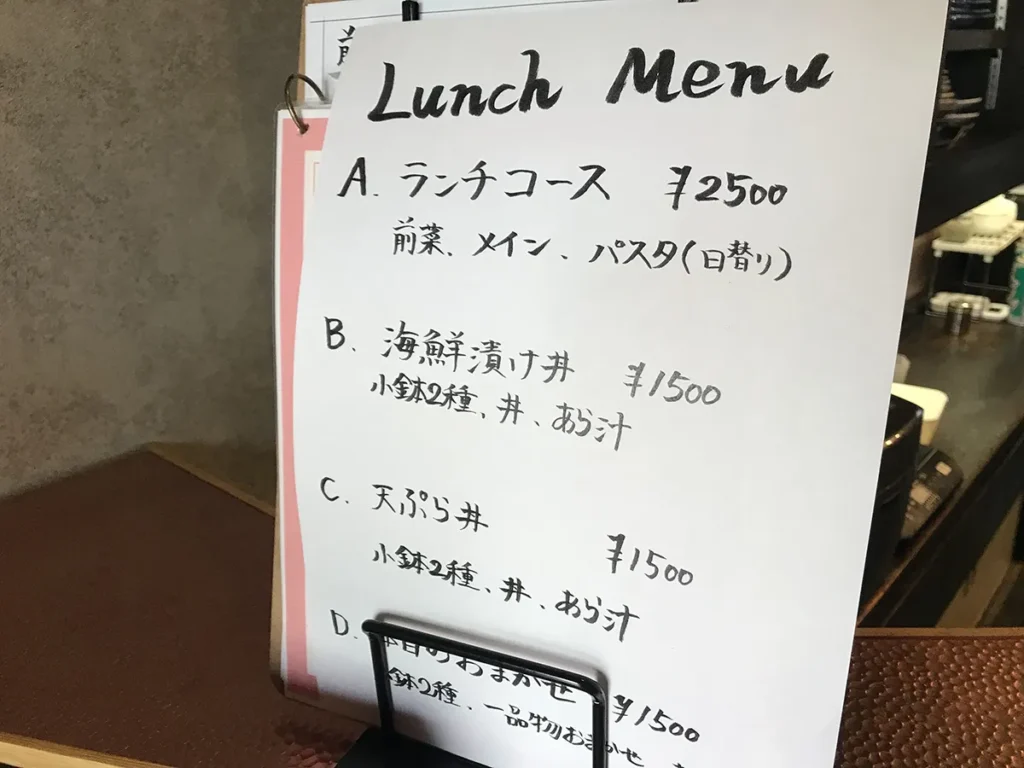 Lunch Menu
A. ランチコース ¥2500
前菜、メイン、パスタ(日替り)
B. 海鮮漬け丼 ¥1500
小鉢2種、丼、あら汁
C. 天ぷら丼 ¥1500
小鉢2種、丼、あら汁
D. 本日のおまかせ ¥1500
鉢2種、一品物おまかせ